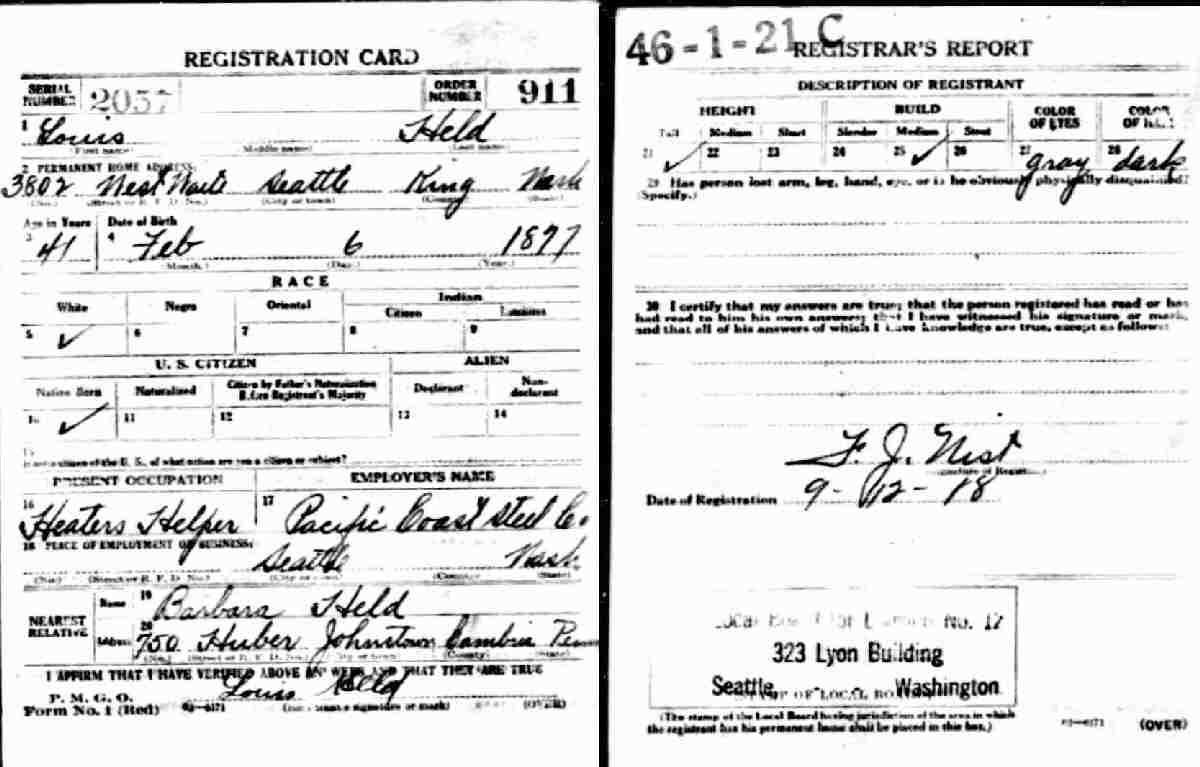 REGISTRATION CARD
SERIAL NUMBER 2057 ORDER NUMBER 911
1 Louis Held
(First name) (Middle name) (Last name)
2 PERMANENT HOME ADDRESS:
3802 West Seattle King Wash
(No.) (Street or R. F. D. No.) (City or town) (County) (State)
Age in Years Date of Birth
3 41 4 Feb 6 1877
(Month.) (Day.) (Year.)
RACE
White Negro Oriental Indian
Citizen Noncitizen
5 ✓ 6 7 8 9
U. S. CITIZEN ALIEN
Native Born Naturalized Citizen by Father's Naturalization Before Registrant's Majority Declarant Non-declarant
10 ✓ 11 12 13 14
15
If not a citizen of the U. S., of what nation are you a citizen or subject?
PRESENT OCCUPATION EMPLOYER'S NAME
16 Heaters Helper 17 Pacific Coast Steel Co
18 PLACE OF EMPLOYMENT OR BUSINESS:
Seattle Wash
(No.) (Street or R. F. D. No.) (City or town) (County) (State)
NEAREST RELATIVE Name 19 Barbara Held
Address 20 750 Huber Johnstown Cambria Penn
(No.) (Street or R. F. D. No.) (City or town) (County) (State)
I AFFIRM THAT I HAVE VERIFIED ABOVE ANSWERS AND THAT THEY ARE TRUE
P. M. G. O.
Form No. 1 (Red) Louis Held
(Registrant's signature or mark) (OVER)
46-1-21 C
REGISTRAR'S REPORT
DESCRIPTION OF REGISTRANT
HEIGHT BUILD COLOR OF EYES COLOR OF HAIR
Tall Medium Short Slender Medium Stout
21 ✓ 22 23 24 25 ✓ 26 27 gray 28 dark
29 Has person lost arm, leg, hand, eye, or is he obviously physically disqualified?
(Specify.)
30 I certify that my answers are true; that the person registered has read or has
had read to him his own answers; that I have witnessed his signature or mark,
and that all of his answers of which I have knowledge are true, except as follows:
F. J. Nist
(Signature of Registrar.)
Date of Registration 9-12-18
Local Board No. 12
323 Lyon Building
Seattle, Washington
(STAMP OF LOCAL BOARD)
(The stamp of the Local Board having jurisdiction of the area in which
the registrant has his permanent home shall be placed in this box.)
(OVER)